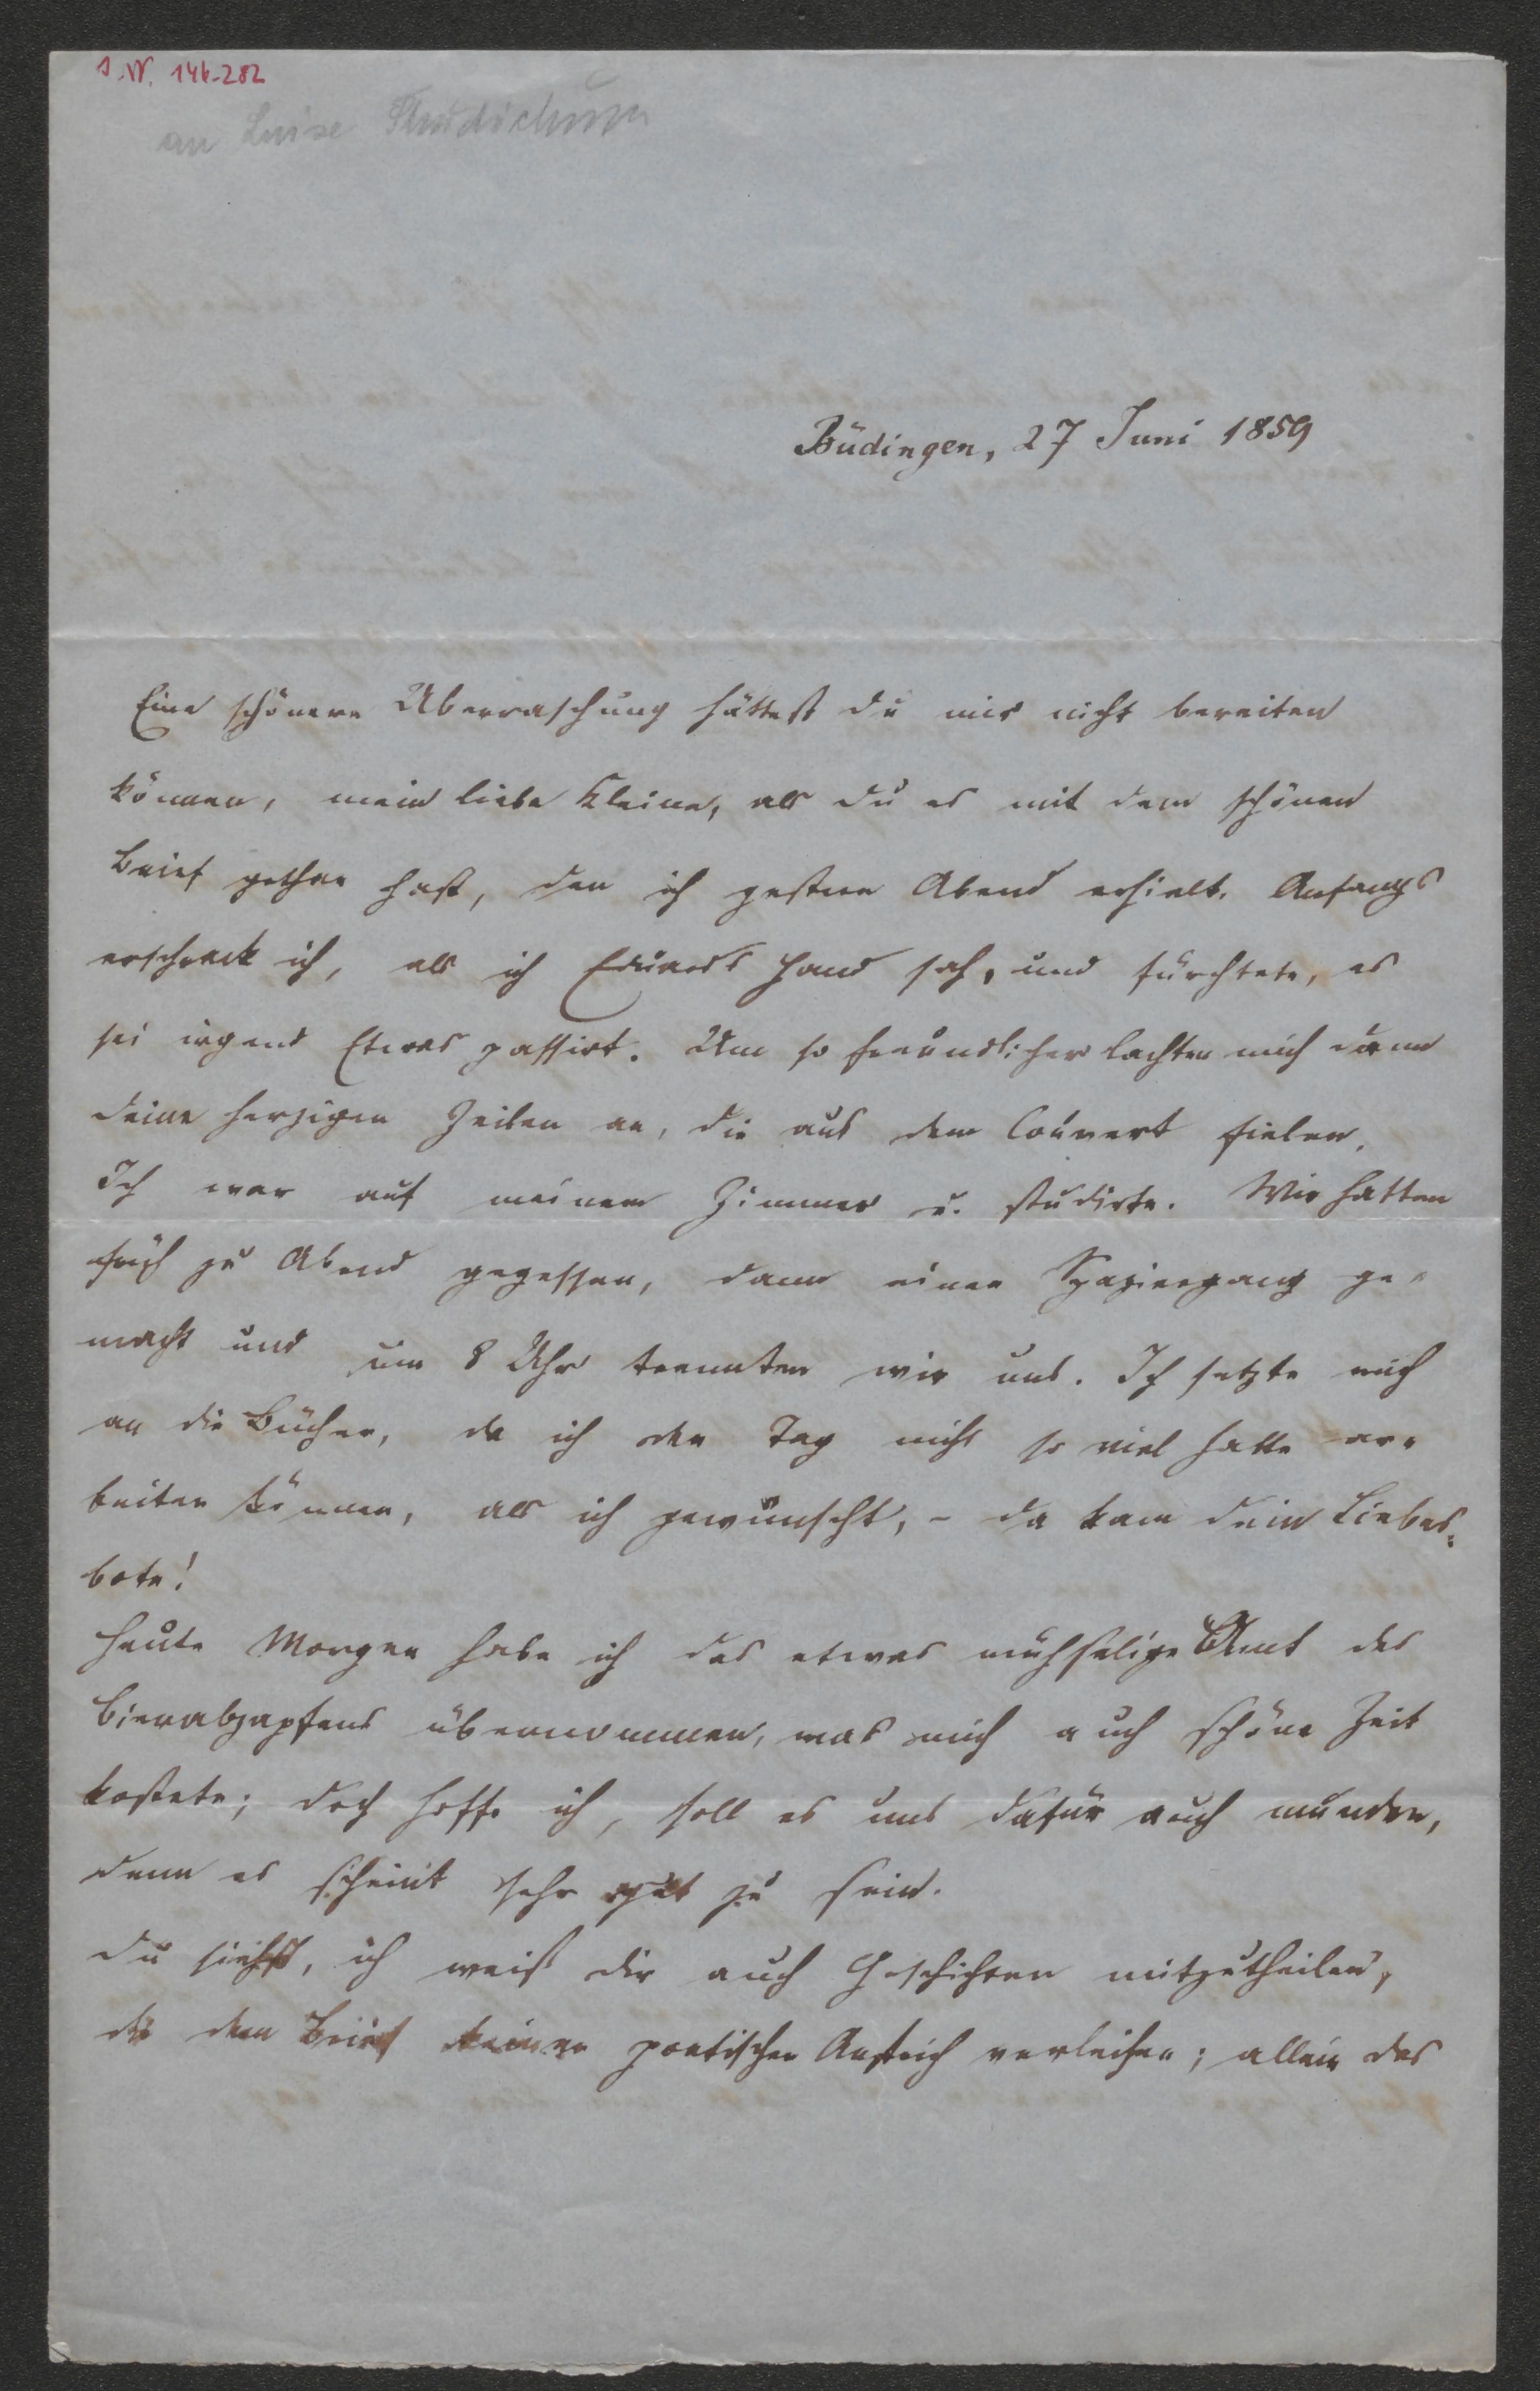 S.W. 146-282
an Luise Thudichum
Büdingen, 27 Juni 1859
Eine schönere Uberraschung hättest du mir nicht bereiten
können, mein liebe Kleine, als du es mit dem schönen
Brief gethan hast, den ich gestern Abend erhielt. Anfangs
erschrack ich, als ich Eduards Hand sah, und fürchtete, es
sei irgend Etwas passirt. Um so freundlicher lachten mich dann
deine herzigen Zeilen an, die aus dem Couvert fielen.
Ich war auf meinem Zimmer u. studirte. Wir hatten
früh zu Abend gegessen, dann einen Spaziergang ge-
macht und um 8 Uhr trennten wir uns. Ich setzte mich
an die Bücher, da ich den Tag nicht so viel hatte ar-
beiten können, als ich gewünscht, - da kam dein Liebes-
bote!
Heute Morgen habe ich das etwas mühselige Amt des
Bierabzapfens übernommen, was mich auch schöne Zeit
kostete; doch hoffe ich, soll es uns dafür auch munden,
denn es scheint sehr gut zu sein.
Du siehst, ich weiß dir auch Geschichten mitzutheilen,
die dem Brief keinen poetischen Anstrich verleihen; allein das